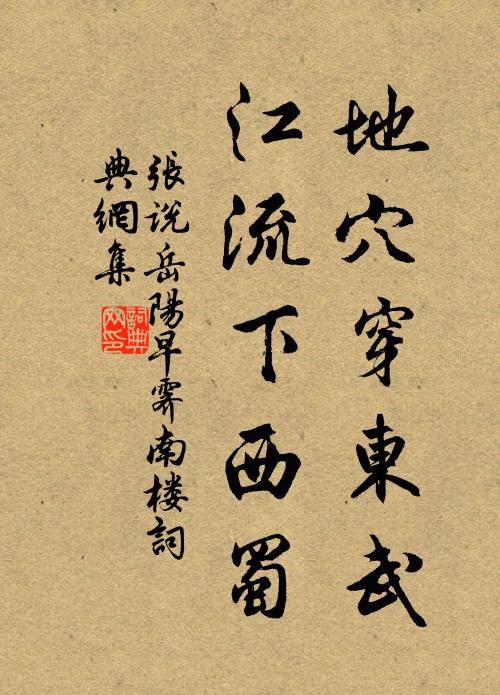 地穴穿東武
江流下西蜀
張説岳陽早霽南楼詞
典網集
詞典網印